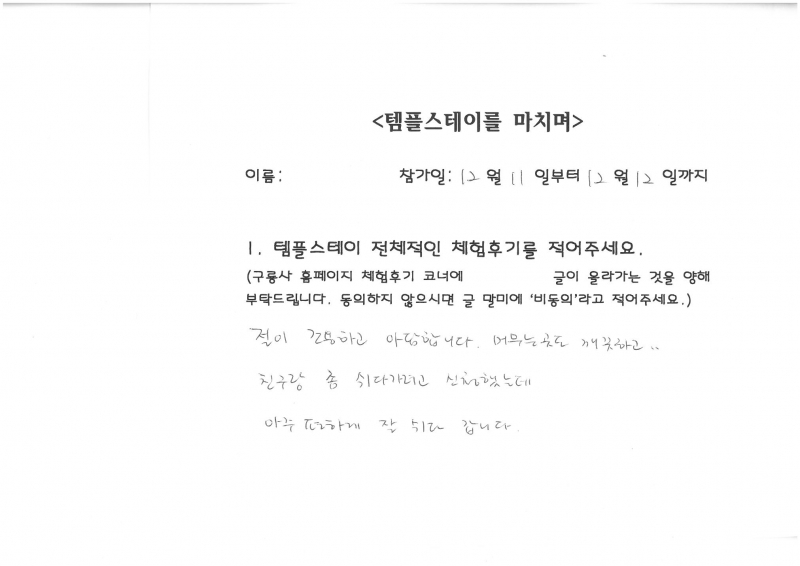 <템플스테이를 마치며>
이름: 참가일: 12 월 11 일부터 12 월 12 일까지
1. 템플스테이 전체적인 체험후기를 적어주세요.
(구룡사 홈페이지 체험후기 코너에 글이 올라가는 것을 양해
부탁드립니다. 동의하지 않으시면 글 말미에 '비동의'라고 적어주세요.)
절이 조용하고 아담합니다. 머무는곳도 깨끗하고..
친구랑 좀 쉬다가려고 신청했는데
아주 편하게 잘 쉬다 갑니다.